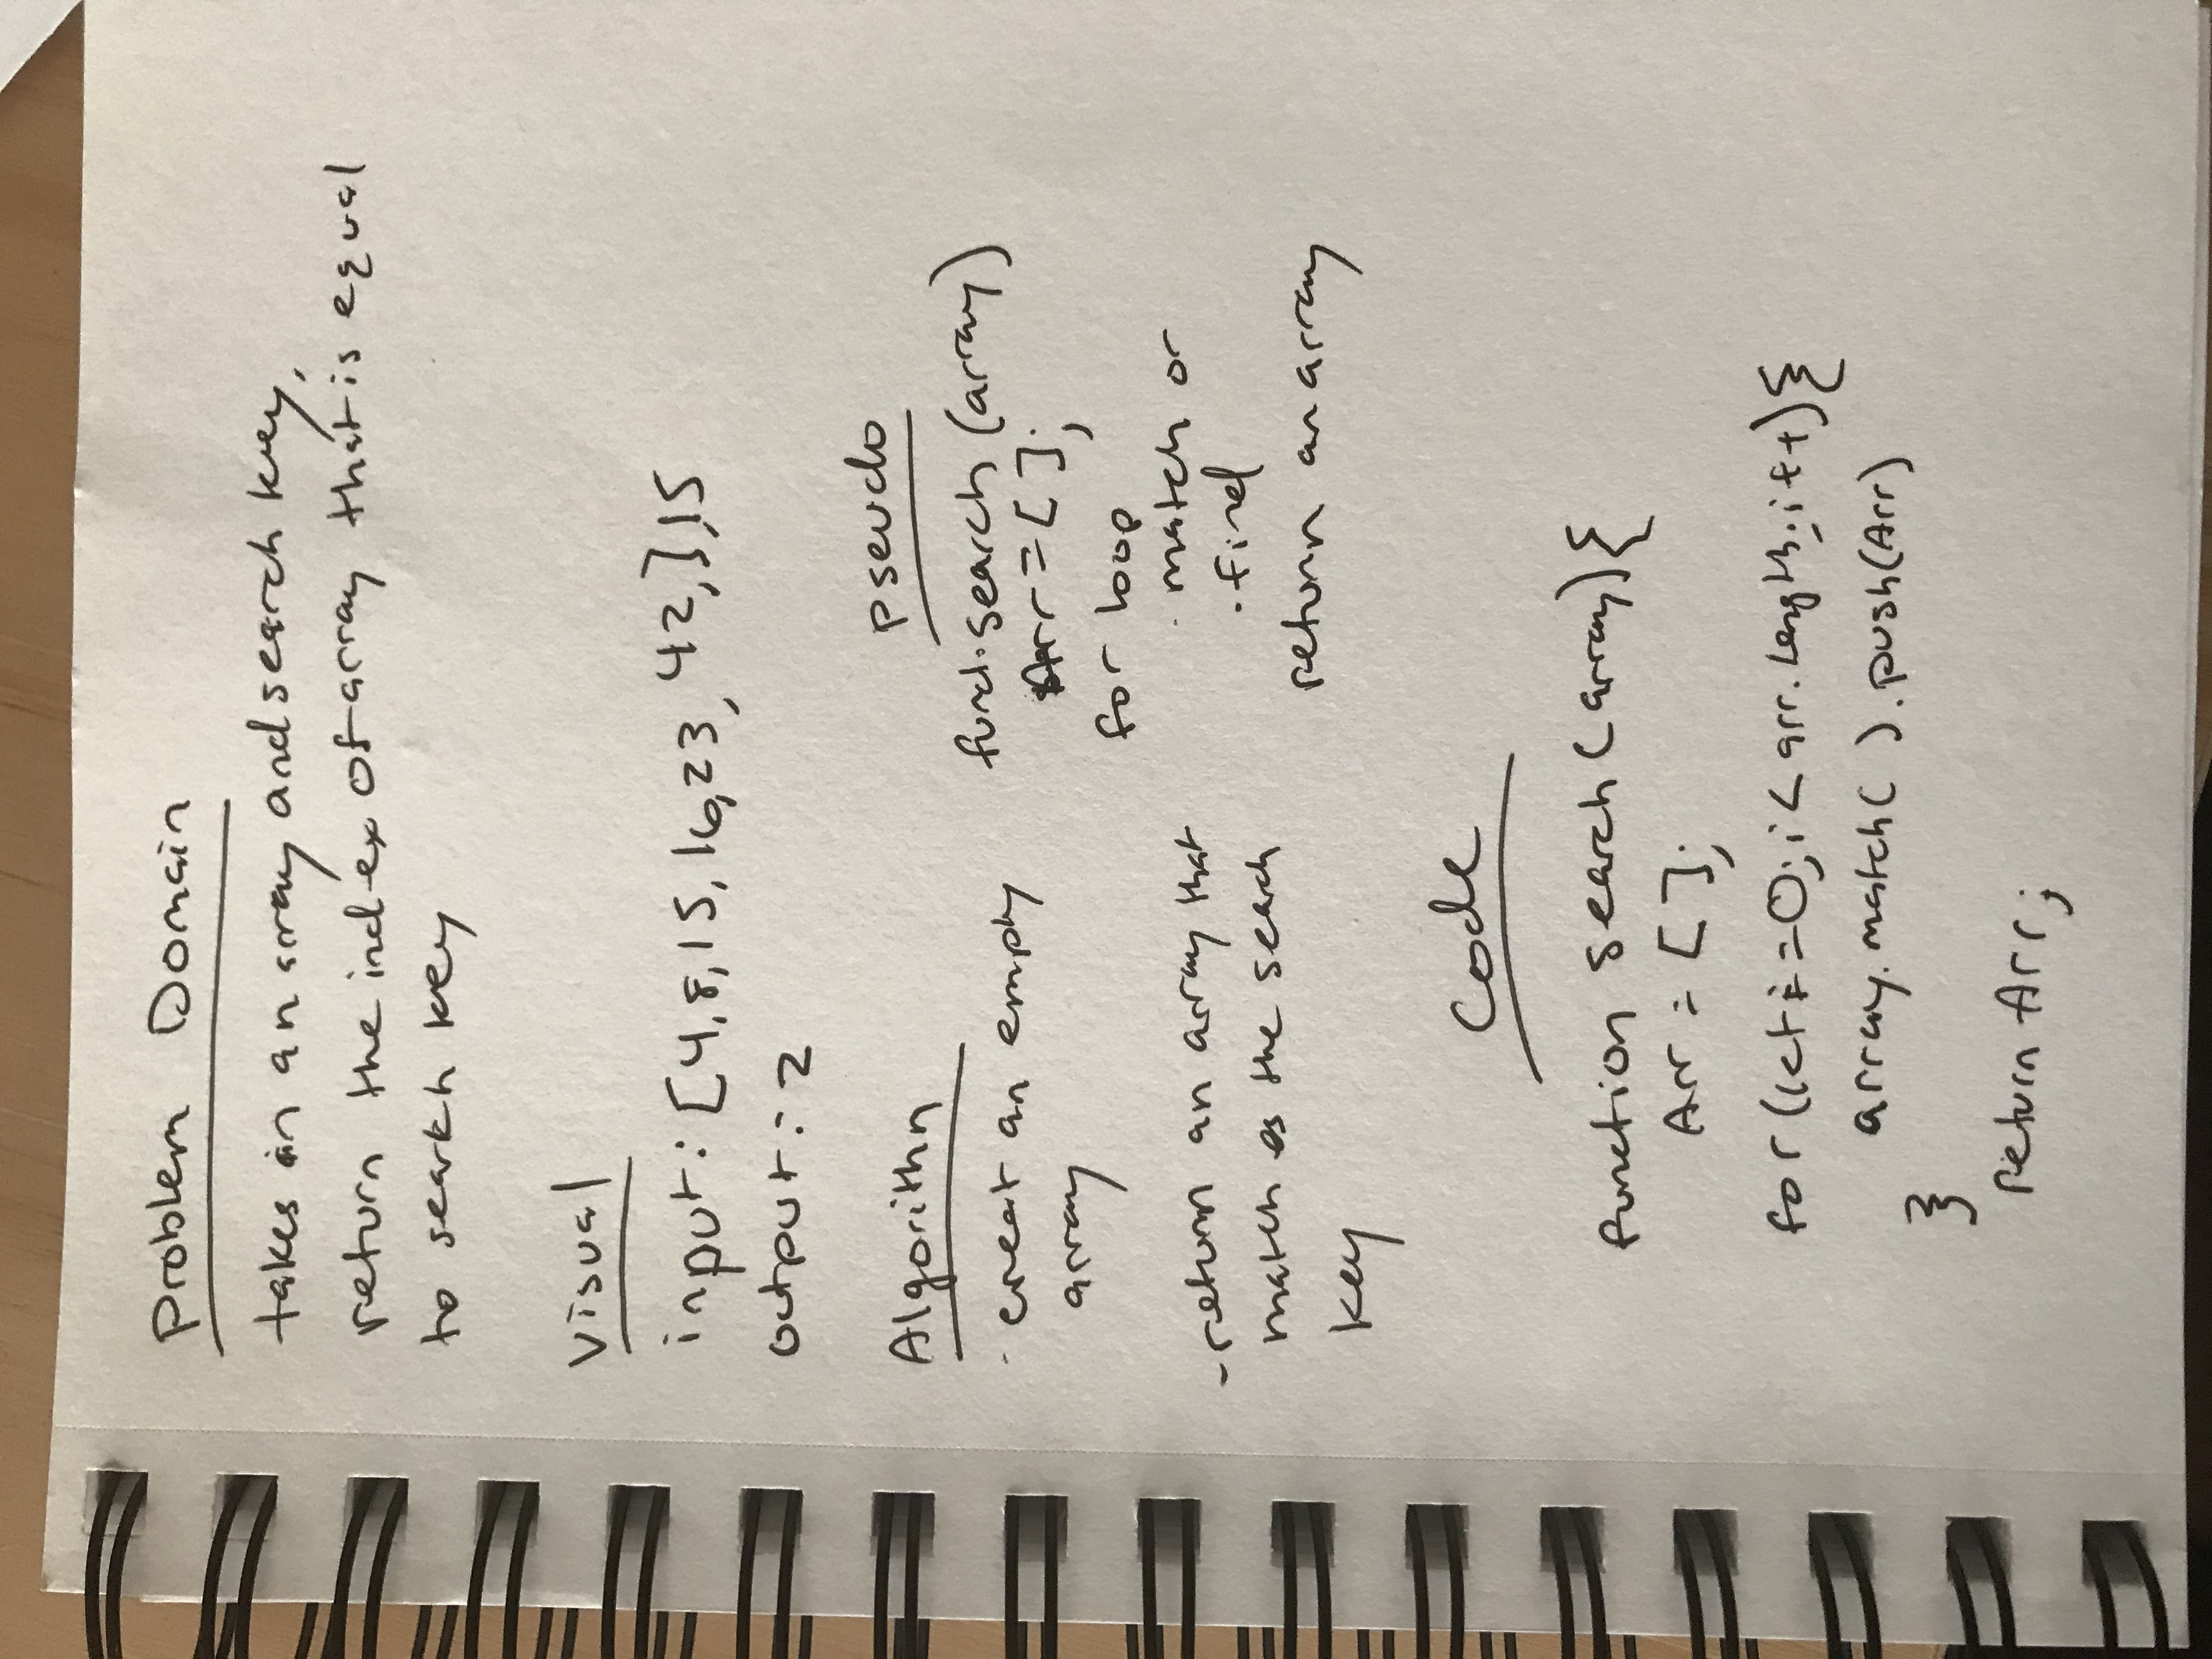 Problem Domain
takes in an array and search key,
return the index of array that is equal
to search key
Visual
input: [4,8,15,16,23,42,],15
output: 2
Algorithm
- creat an empty
array
- return an array that
matches the seach
key
pseudo
funct. search (array)
Arr = [ ];
for loop
. match or
. find
return an array
Code
function search (array) {
Arr = [ ];
for (let i=0; i < arr.length; i++) {
array.match( ).push(Arr)
}
return Arr;